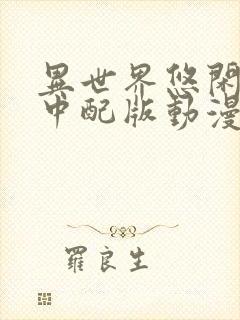 異世界悠閑
中配版動漫
羅良生